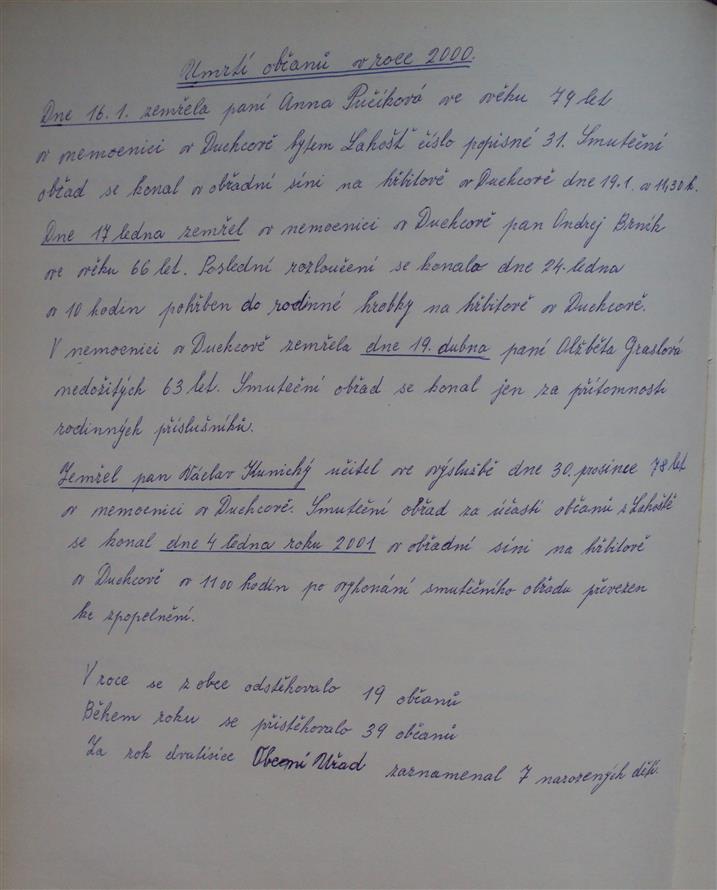 Umrtí občanů v roce 2000.
Dne 16. 1. zemřela paní Anna Pučíková ve věku 79 let
v nemocnici v Duchcově bytem Lahošť číslo popisné 31. Smuteční
obřad se konal v obřadní síni na hřbitově v Duchcově dne 19.1. v 11,30 h.
Dne 17 ledna zemřel v nemocnici v Duchcově pan Ondrej Brník
ve věku 66 let. Poslední rozloučení se konalo dne 24. ledna
v 10 hodin pohřben do rodinné hrobky na hřbitově v Duchcově.
V nemocnici v Duchcově zemřela dne 19. dubna paní Alžběta Graslová
nedožitých 63 let. Smuteční obřad se konal jen za přítomnosti
rodinných příslušníků.
Zemřel pan Václav Kunický učitel ve výslužbě dne 30. prosince 78 let
v nemocnici v Duchcově. Smuteční obřad za účasti občanů z Lahoště
se konal dne 4 ledna roku 2001 v obřadní síni na hřbitově
v Duchcově v 11 00 hodin po vykonání smutečního obřadu převezen
ke zpopelnění.
V roce se z obce odstěhovalo 19 občanů
Během roku se přistěhovalo 39 občanů
Za rok dvatisíce Obecní Úřad zaznamenal 7 narozených dětí.